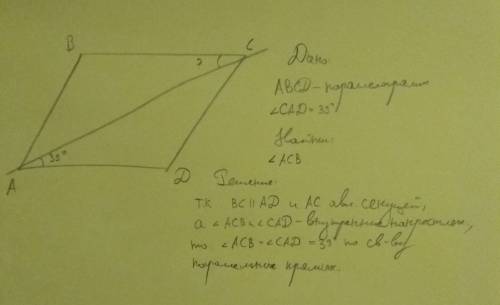 B
C
?
39°
A
D
Дано:
ABCD - параллелограмм
∠CAD = 39°
Найти:
∠ACB
Решение:
т.к. BC || AD и AC явл. секущей,
а ∠ACB и ∠CAD - внутренние накрестлеж,
то ∠ACB = ∠CAD = 39° по св-ву
паралельных прямых.